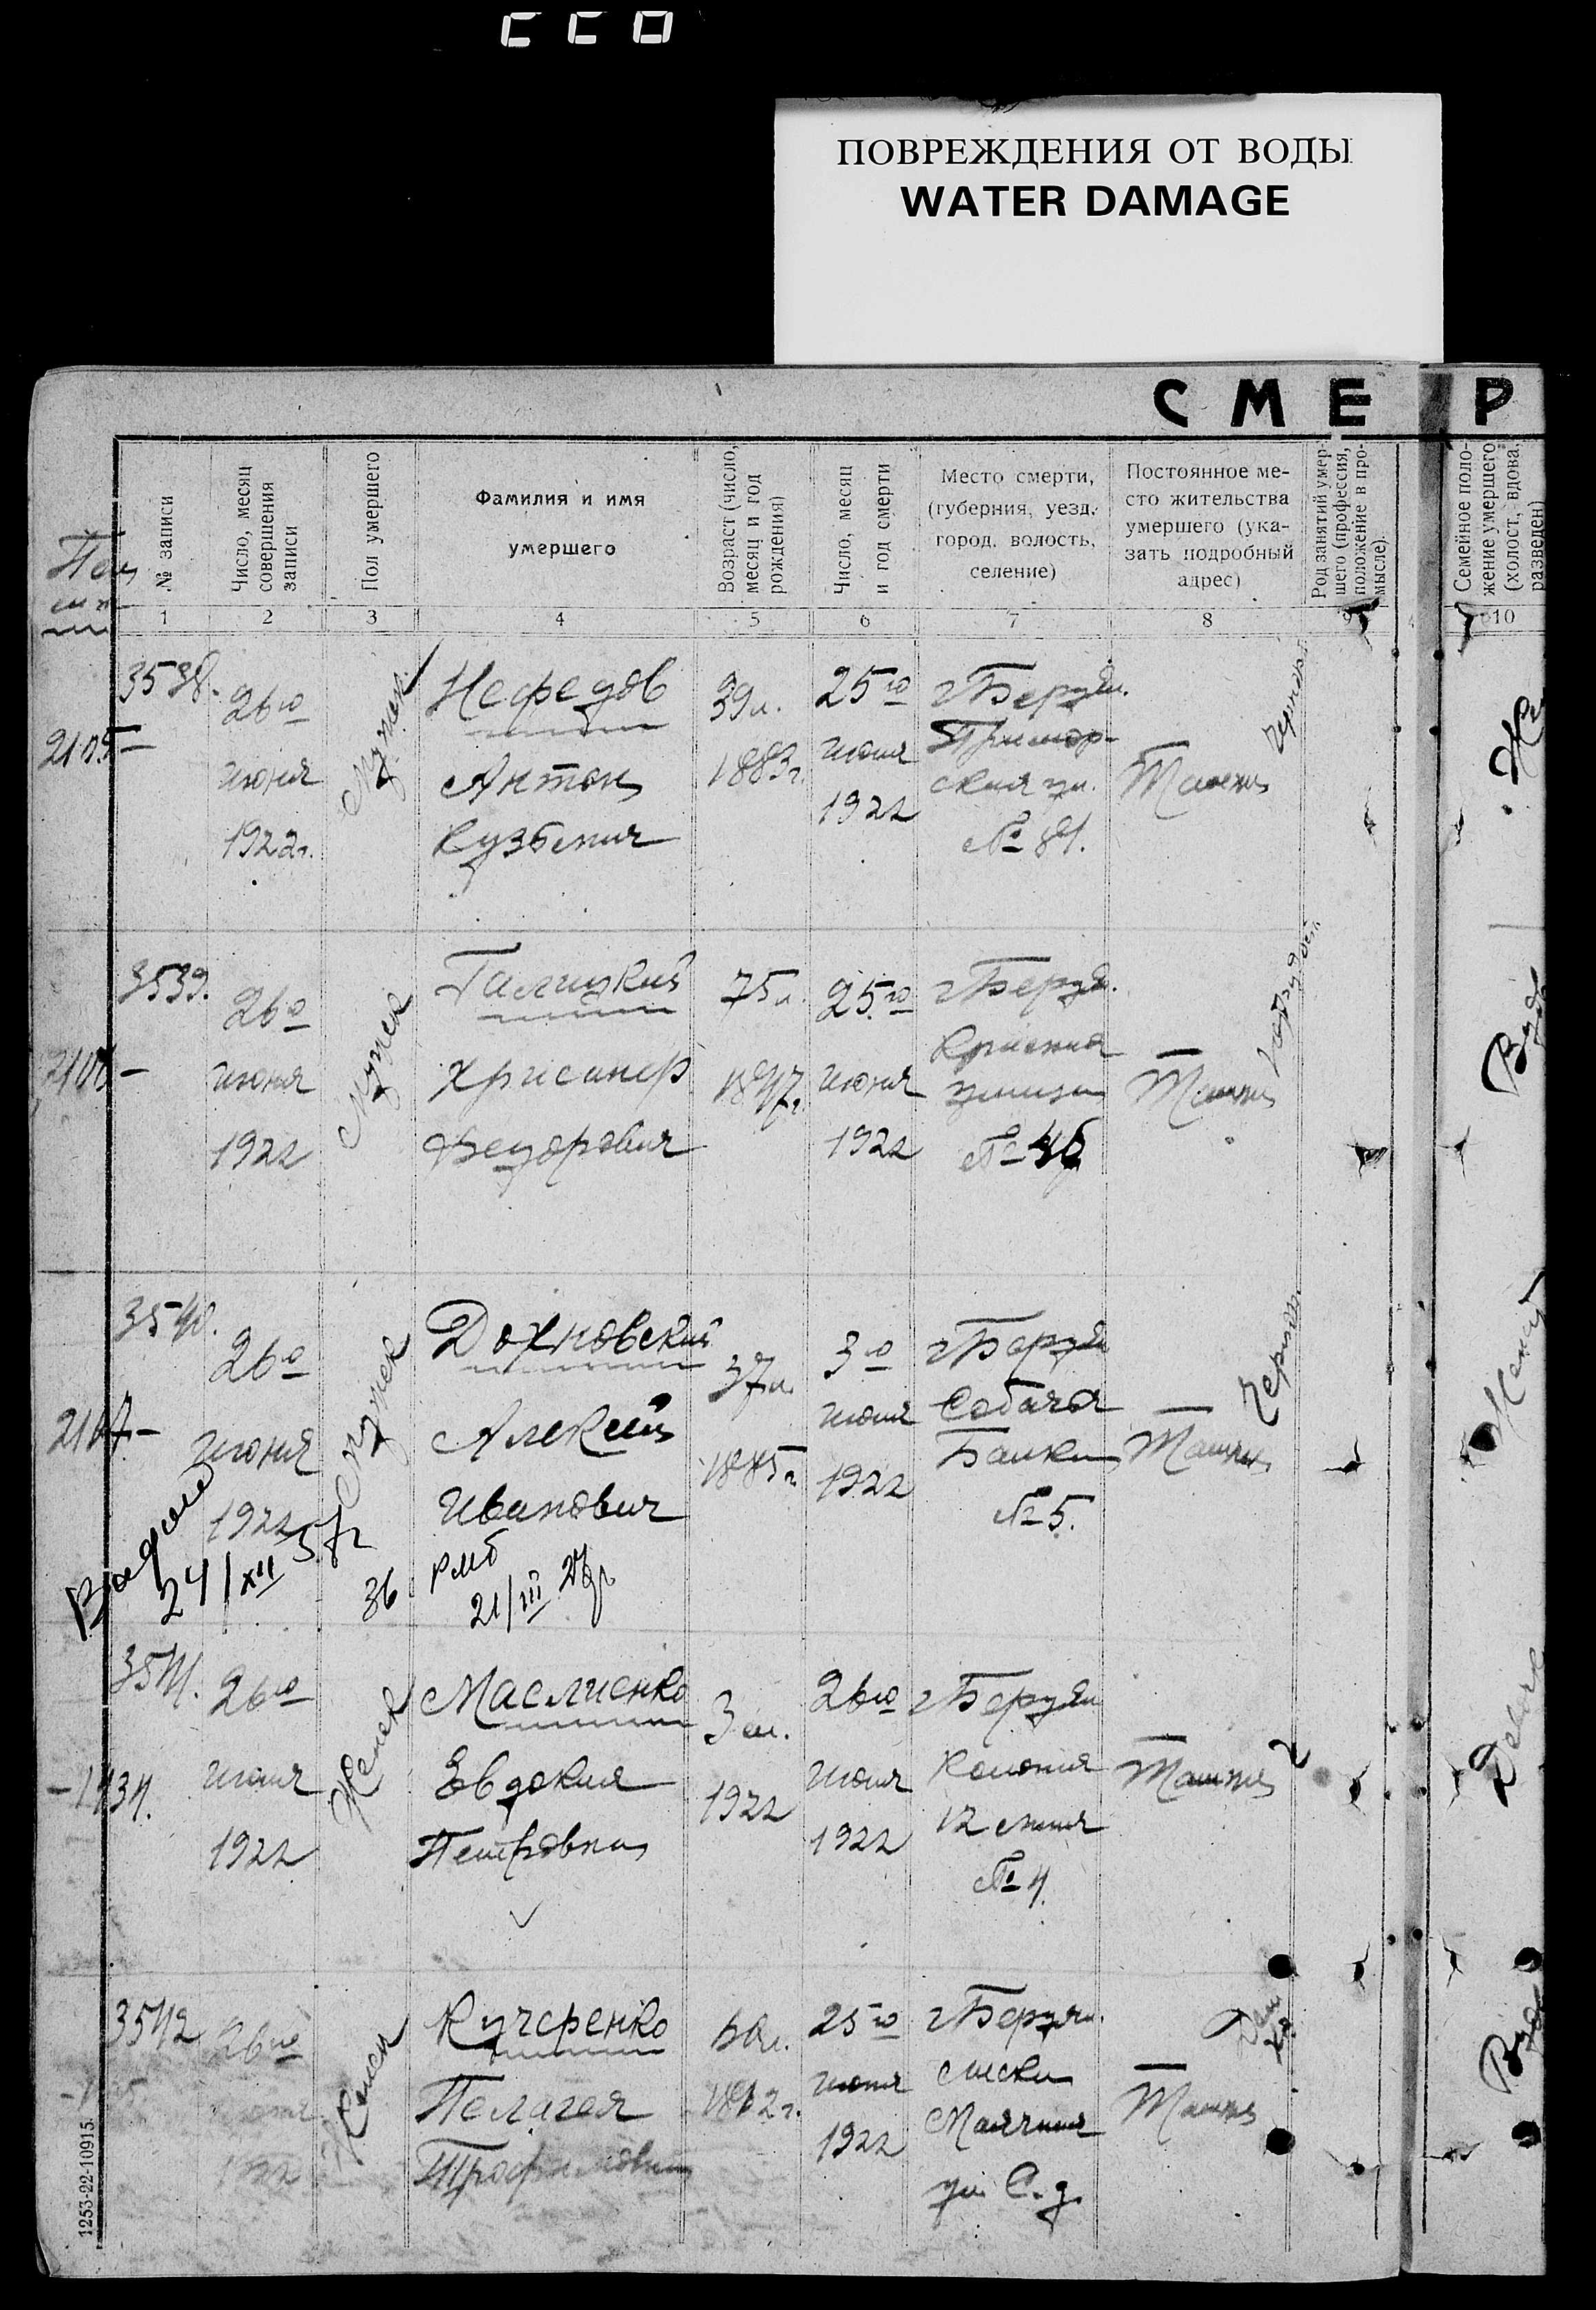 ПОВРЕЖДЕНИЯ ОТ ВОДЫ
WATER DAMAGE
СМЕР
№ записи
Число, месяц
совершения
записи
Пол умершего
Фамилия и имя
умершего
Возраст (число,
месяц и год
рождения)
Число, месяц
и год смерти
Место смерти,
(губерния, уезд,
город, волость,
селение)
Постоянное ме-
сто жительства
умершего (ука-
зать подробный
адрес)
Род занятий умер-
шего (профессия,
положение в про-
мысле).
Семейное поло-
жение умершего
(холост, вдова,
разведен)
1 2 3 4 5 6 7 8 9 10
3538.
26го
июня
1922г.
Мужск.
Нефедов
Антон
Кузьмич
39л.
1883г.
25го
июня
1922
г Бердян.
Примор-
ская ул.
№ 81.
Там же
3539.
26го
июня
1922
Мужск
Галицкий
Хрисанф
Федорович
75л.
1847г.
25го
июня
1922
г Бердя.
Красная
улица
№ 46
Там же
3540.
26го
июня
1922
Мужск
Дохновский
Алексей
Иванович
37л.
1885г
3го
июня
1922
г Бердян
Собачья
Балка
№ 5.
Там же
24/XII 57г
36
21/III
3541.
26го
июня
1922
Женск
Маслиенко
Евдокия
Петровна
3 м.
1922
26го
июня
1922
г Бердян
Колония
12 линия
№ 4.
Там же
3542
26го
Женск
Кучеренко
Пелагея
60л.
1862г.
25го
июня
1922
г Бердян.
Лиски
Маячная
ул. С. д.
Там же
1253-22-10915.